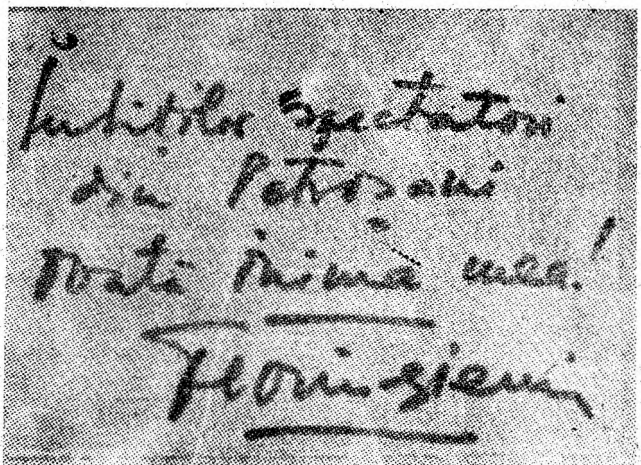 Iubiților spectatori
din Petroșani
toată inima mea!
Florin Piersic